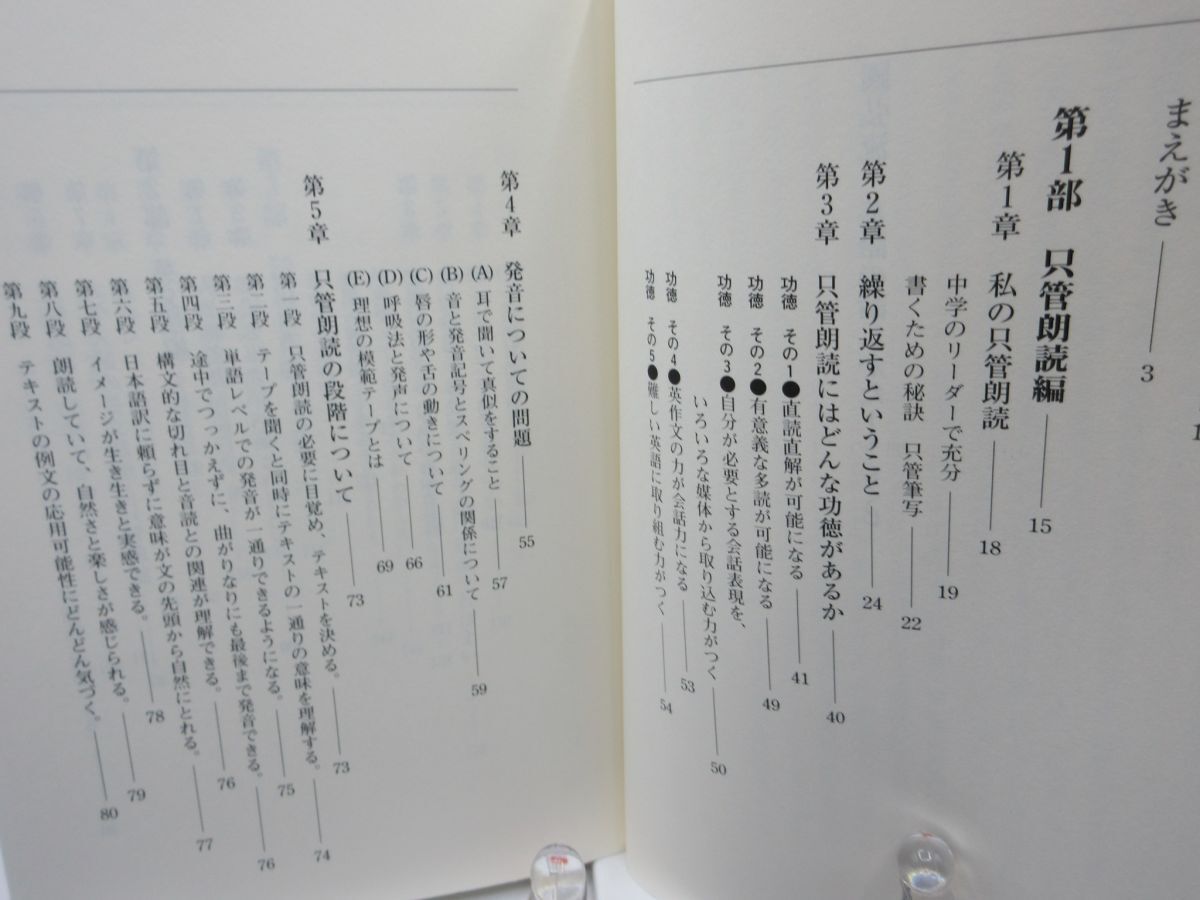 まえがき 3
第1部 只管朗読編 15
第1章 私の只管朗読 18
中学のリーダーで充分 19
書くための秘訣 只管筆写 22
第2章 繰り返すということ 24
第3章 只管朗読にはどんな功徳があるか 40
功徳 その1●直読直解が可能になる 41
功徳 その2●有意義な多読が可能になる 49
功徳 その3●自分が必要とする会話表現を、
いろいろな媒体から取り込む力がつく 50
功徳 その4●英作文の力が会話力になる 53
功徳 その5●難しい英語に取り組む力がつく 54
第4章 発音についての問題 55
(A) 耳で聞いて真似をすること 57
(B) 音と発音記号とスペリングの関係について 59
(C) 唇の形や舌の動きについて 61
(D) 呼吸法と発声について 66
(E) 理想の模範テープとは 69
第5章 只管朗読の段階について 73
第一段 只管朗読の必要に目覚め、テキストを決める。 73
第二段 テープを聞くと同時にテキストの一通りの意味を理解する。 74
第三段 単語レベルでの発音が一通りできるようになる。 75
第四段 途中でつっかえずに、曲がりなりにも最後まで発音できる。 76
第五段 構文的な切れ目と音読との関連が理解できる。 76
第六段 日本語訳に頼らずに意味が文の先頭から自然にとれる。 77
第七段 イメージが生き生きと実感できる。 78
第八段 朗読していて、自然さと楽しさが感じられる。 79
第九段 テキストの例文の応用可能性にどんどん気づく。 80